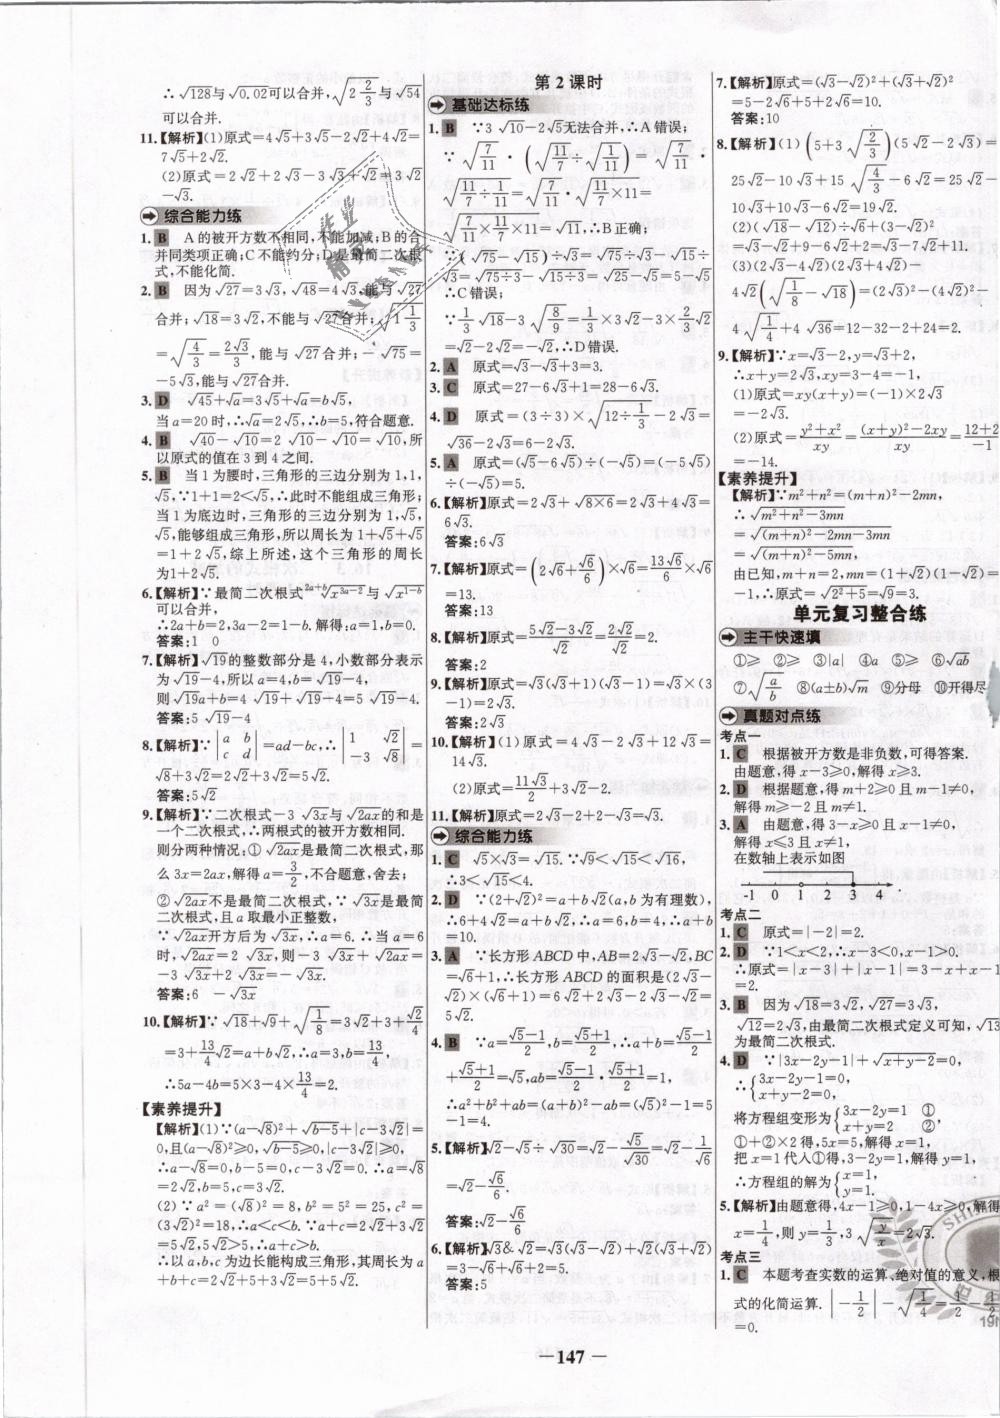 ∴√128与√0.02可以合并,√(2 2/3)与√54
可以合并.
11.【解析】(1)原式=4√5+3√5-2√2+4√2=
7√5+2√2.
(2)原式=2√2+2√3-3√2+√3=3√2
-√3.
综合能力练
1. B A的被开方数不相同,不能加减;B的合
并同类项正确;C不能约分;D是最简二次根
式,不能化简.
2. B 因为√27=3√3,√48=4√3,能与√27
合并;√18=3√2,不能与√27合并;√(1 1/3)
=√(4/3)=2√3/3,能与√27合并;-√75=
-5√3,能与√27合并.
3. D √45+√a=3√5+√a=b√5,
当a=20时,∴√a=2√5,∴b=5,符合题意.
4. B √40-√10=2√10-√10=√10,所
以原式的值在3到4之间.
5. B 当1为腰时,三角形的三边分别为1,1,
√5,∵1+1=2<√5,∴此时不能组成三角形;
当1为底边时,三角形的三边分别为1,√5,
√5,能够组成三角形,所以周长为1+√5+√5
=1+2√5,综上所述,这个三角形的周长
为1+2√5.
6.【解析】∵最简二次根式 ²ᵃ⁺ᵇ√(x^(3a-2))与√(x^(1-b))
可以合并,
∴2a+b=2,3a-2=1-b.解得:a=1,b=0.
答案:1 0
7.【解析】√19的整数部分是4,小数部分表示
为√19-4,所以a=4,b=√19-4,
则√19a+b=4√19+√19-4=5√19-4.
答案:5√19-4
8.【解析】∵|a b; c d|=ad-bc,∴|1 √2; -3 √8|=
√8+3√2=2√2+3√2=5√2.
答案:5√2
9.【解析】∵二次根式-3√3x与√2ax的和是
一个二次根式,∴两根式的被开方数相同.
则分两种情况:①√2ax是最简二次根式,那
么3x=2ax,解得a=3/2,不合题意,舍去;
②√2ax不是最简二次根式,∵√3x是最简
二次根式,且a取最小正整数,
∵√2ax开方后为√3x,∴a=6.∴当a=6
时,√2ax=2√3x,则-3√3x+√2ax=
-3√3x+2√3x=-√3x.
答案:6 -√3x
10.【解析】∵√18+√9+√(1/8)=3√2+3+√2/4
=3+13/4√2=a+b√2,∴a=3,b=13/4,
∴5a-4b=5×3-4×13/4=2.
【素养提升】
【解析】(1)∵(a-√8)²+√(b-5)+|c-3√2|=
0,且(a-√8)²≥0,√(b-5)≥0,|c-3√2|≥0,
∴a-√8=0,b-5=0,c-3√2=0.∴a=√8
=2√2,b=5,c=3√2.
(2)∵a²=(√8)²=8,b²=5²=25,c²=
(3√2)²=18,∴a<c<b.∵a+c=2√2+3√2
=5√2,5√2>5,∴a+c>b.
∴以a,b,c为边长能构成三角形,其周长为
a+b+c=2√2+5+3√2=5√2+5.
第2课时
基础达标练
1. B ∵3√10-2√5无法合并,∴A错误;
∵√(7/11)·(√(7/11)÷√(1/11))=√(7/11)·
√(7/11÷1/11)=√(7/11)·√(7/11×11)=
√(7/11×7/11×11)=√11,∴B正确;
∵(√75-√15)÷√3=√75÷√3-√15÷
√3=√(75÷3)-√(15÷3)=√25-√5=5-√5
∴C错误;
∵1/3√18-3√(8/9)=1/3×3√2-3×2/3√2
=√2-2√2=-√2,∴D错误.
2. A 原式=√3-√3+3=3.
3. C 原式=27-6√3+1=28-6√3.
4. D 原式=(3÷3)×√(12÷1/3)-2√3=
√36-2√3=6-2√3.
5. A 原式=(√5-6√5)÷(-√5)=(-5√5)
÷(-√5)=5.
6.【解析】原式=2√3+√(8×6)=2√3+4√3=
6√3.
答案:6√3
7.【解析】原式=(2√6+√6/6)×√6=13√6/6×√6
=13.
答案:13
8.【解析】原式=(5√2-3√2)/√2=2√2/√2=2.
答案:2
9.【解析】原式=√3(√3+1)(√3-1)=√3×(3
-1)=2√3.
答案:2√3
10.【解析】(1)原式=4√3-2√3+12√3=
14√3.
(2)原式=11√3/2+3√2-2.
11.【解析】原式=2√3-2+2-√3=√3.
综合能力练
1. C √5×√3=√15.∵√9<√15<√16,
∴3<√15<4.
2. D ∵(2+√2)²=a+b√2(a,b为有理数),
∴6+4√2=a+b√2,∴a=6,b=4,∴a+b
=10.
3. A ∵长方形ABCD中,AB=2√3-√2,BC
=√6+1,∴长方形ABCD的面积是(2√3-
√2)×(√6+1)=6√2+2√3-2√3-√2=
5√2.
4. B ∵a=(√5-1)/2,b=(√5+1)/2,∴a+b=(√5-1)/2
+(√5+1)/2=√5,ab=(√5-1)/2×(√5+1)/2=1,
∴a²+b²+ab=(a+b)²-ab=(√5)²-1=5
-1=4.
5.【解析】√2-√5÷√30=√2-√5/√30=√2-1/√6
=√2-√6/6.
答案:√2-√6/6
6.【解析】√3&√2=√3(√3-√2)+√2(√3+√2)=
3-√6+√6+2=5.
答案:5
7.【解析】原式=(√3-√2)²+(√3+√2)²
=5-2√6+5+2√6=10.
答案:10
8.【解析】(1)(5+3√(2/3))(5√2-2√3)=
25√2-10√3+15√(4/3)-6√2=25√2-
10√3+10√3-6√2=19√2.
(2)(√18-√12)÷√6+(3-√2)²
=√3-√2+9-6√2+2=√3-7√2+11.
(3)(2√3-4√2)(2√3+4√2)-
4√2(√(1/8)-√18)=(2√3)²-(4√2)²-
4√(1/4)+4√36=12-32-2+24=2.
9.【解析】∵x=√3-2,y=√3+2,
∴x+y=2√3,xy=3-4=-1,
(1)原式=xy(x+y)=(-1)×2√3
=-2√3.
(2)原式=(y²+x²)/xy=((x+y)²-2xy)/xy=(12+2)/-1
=-14.
【素养提升】
【解析】∵m²+n²=(m+n)²-2mn,
∴√(m²+n²-3mn)
=√((m+n)²-2mn-3mn)
=√((m+n)²-5mn),
由已知,m+n=2,mn=(1+√2)(1-√2)=
-1,∴原式=√(2²+5)=√9=3.
单元复习整合练
主干快速填
①≥ ②≥ ③|a| ④a ⑤≥ ⑥√ab
⑦√(a/b) ⑧(a±b)√m ⑨分母 ⑩开得尽
真题对点练
考点一
1. C 根据被开方数是非负数,可得答案.
由题意,得x-3≥0,解得x≥3.
2. D 根据题意,得m+2≥0且m-1≠0,
解得m≥-2且m≠1.
3. A 由题意,得3-x≥0且x-1≠0,
解得x≤3且x≠1,
在数轴上表示如图
-1 0 1 2 3 4
考点二
1. C 原式=|-2|=2.
2. D ∵1<x<2,∴x-3<0,x-1>0,
∴原式=|x-3|+|x-1|=3-x+x-1
=2.
3. B 因为√18=3√2,√27=3√3,
√12=2√3,由最简二次根式定义可知,√13
为最简二次根式.
4. D ∵|3x-2y-1|+√(x+y-2)=0,
∴{3x-2y-1=0,
x+y-2=0.
将方程组变形为{3x-2y=1 ①
x+y=2 ②,
①+②×2得,5x=5,解得x=1,
把x=1代入①得,3-2y=1,解得y=1,
∴方程组的解为{x=1,
y=1.
5.【解析】由题意得,4x-1≥0,1-4x≥0,解得
x=1/4,则y=√3,√(y/x)=2√3.
考点三
1. C 本题考查实数的运算、绝对值的意义,根
式的化简运算.|-1/2|-√(1/4)=1/2-1/2
=0.
— 147 —